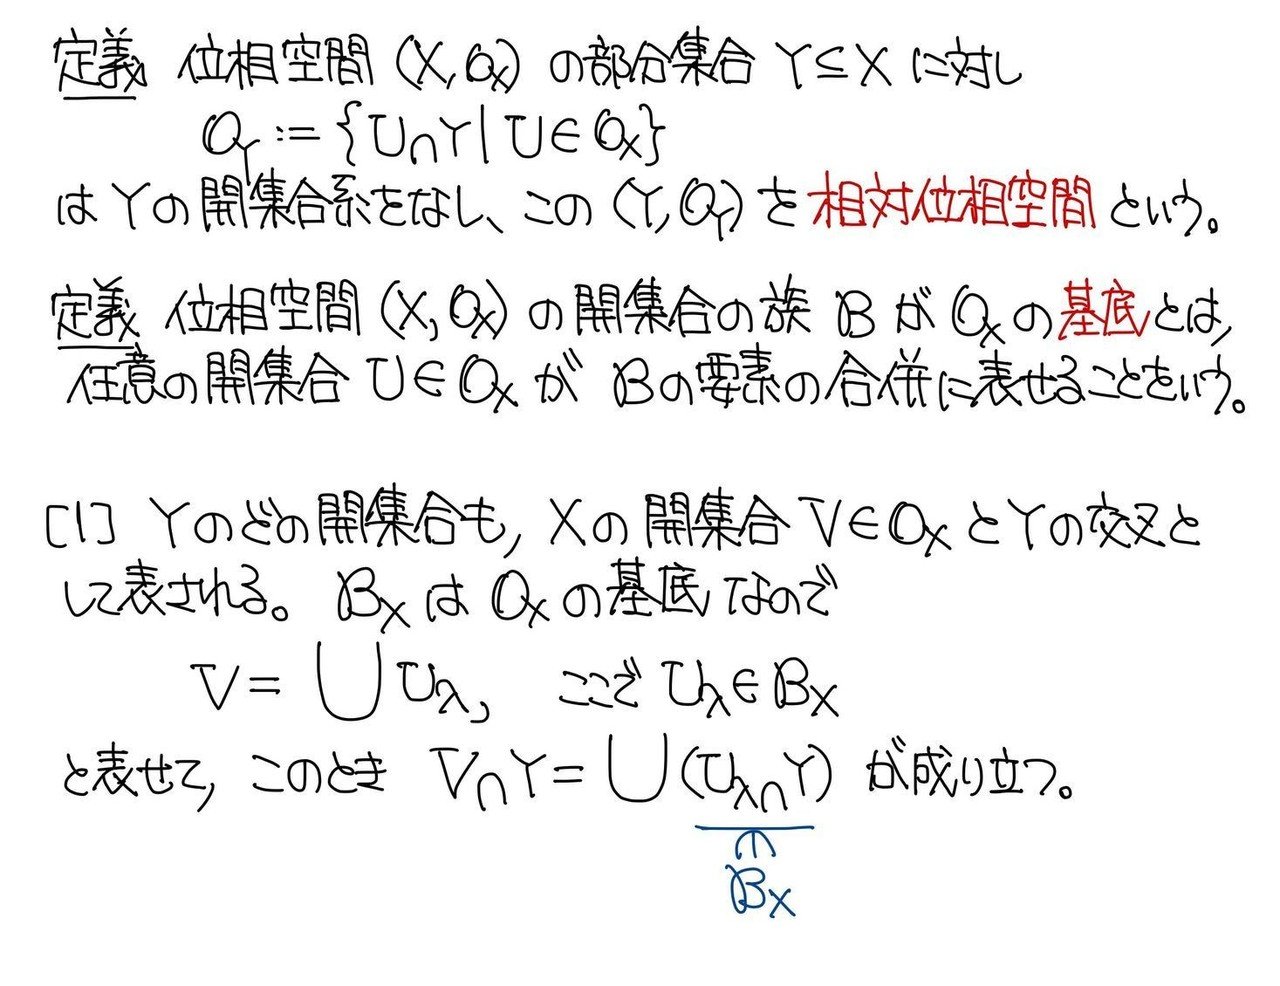 定義 位相空間 (X, O_X) の部分集合 Y⊆X に対し
O_Y := {U∩Y | U∈O_X}
は Yの開集合系をなし、この (Y, O_Y) を相対位相空間という。
定義 位相空間 (X, O_X) の開集合の族 B が O_X の基底とは,
任意の開集合 U∈O_X が Bの要素の合併に表せることをいう。
[1] Yのどの開集合も, Xの開集合 V∈O_X とYの交叉と
して表される。 B_X は O_X の基底なので
V = ⋃ U_λ, ここで U_λ∈B_X
と表せて, このとき V∩Y = ⋃ (U_λ∩Y) が成り立つ。
∈
B_X